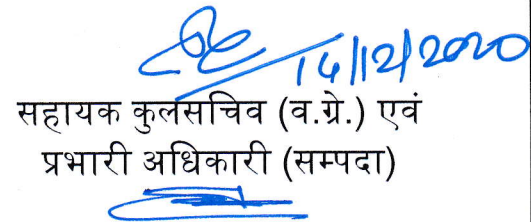 14/12/2020
सहायक कुलसचिव (व.ग्रे.) एवं
प्रभारी अधिकारी (सम्पदा)